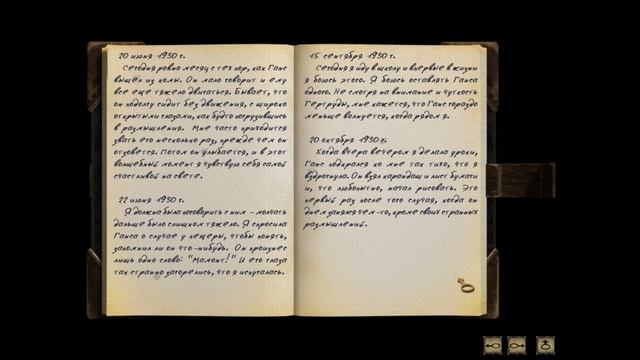 20 июня 1930 г.
Сегодня ровно месяц с тех пор, как Ганс
вышел из комы. Он мало говорит и ему
все еще тяжело двигаться. Бывает, что
он подолгу сидит без движения, с широко
открытыми глазами, как будто погрузившись
в размышления. Мне часто приходится
звать его несколько раз, прежде чем он
отзовется. Потом он улыбается, и в этот
волшебный момент я чувствую себя самой
счастливой на свете.
22 июня 1930 г.
Я должна была поговорить с ним - молчать
дальше было слишком тяжело. Я спросила
Ганса о случае у пещеры, чтобы понять,
запомнил ли он что-нибудь. Он произнес
лишь одно слово: "Мамонт!" И его глаза
так странно загорелись, что я испугалась.
15 сентября 1930 г.
Сегодня я иду в школу и впервые в жизни
я боюсь этого. Я боюсь оставлять Ганса
одного. Не смотря на внимание и чуткость
Гертруды, мне кажется, что Ганс гораздо
меньше волнуется, когда рядом я.
20 октября 1930 г.
Когда вчера вечером я делала уроки,
Ганс подкрался ко мне так тихо, что я
вздрогнула. Он взял карандаш и лист бумаги
и, что любопытно, начал рисовать. Это
первый раз после того случая, когда он
днем занялся чем-то, кроме своих странных
размышлений.